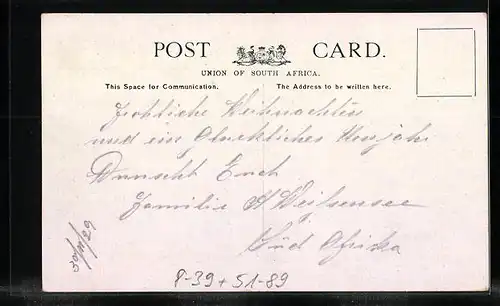 POST CARD.
UNION OF SOUTH AFRICA.
This Space for Communication. The Address to be written here.
Fröhliche Weihnachten
und ein Glückliches Neujahr
Wünscht Euch
Familie A
Süd Afrika
8-39+51-89